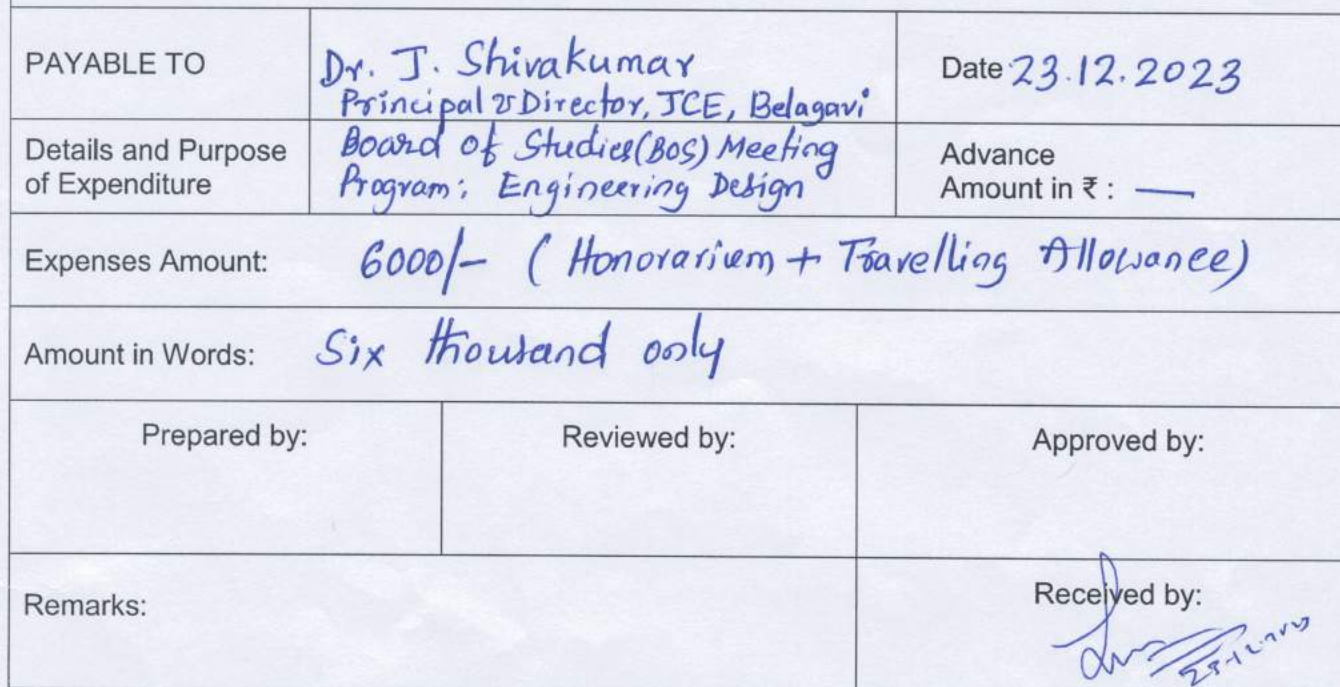 PAYABLE TO
Dr. J. Shivakumar
Principal & Director, JCE, Belagavi
Date 23.12.2023
Details and Purpose
of Expenditure
Board of Studies (BOS) Meeting
Program: Engineering Design
Advance
Amount in ₹ : —
Expenses Amount: 6000/- ( Honorarium + Travelling Allowance)
Amount in Words: Six thousand only
Prepared by:
Reviewed by:
Approved by:
Remarks:
Received by: